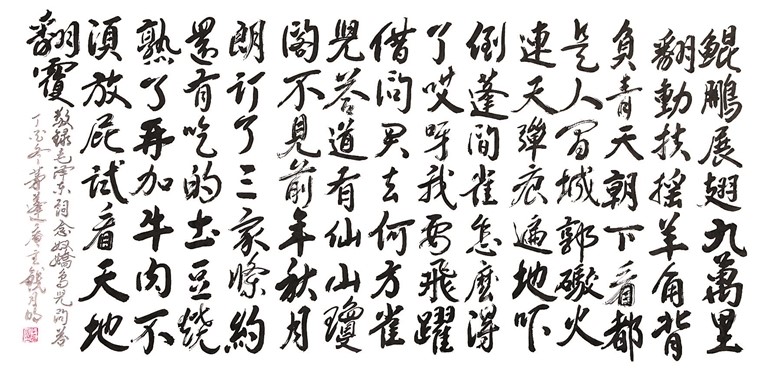 鯤鵬展翅九萬里
翻動扶搖羊角背
負青天朝下看都
是人間城郭礮火
連天彈痕遍地吓
倒蓬間雀怎麼得
了哎呀我要飛躍
借問君去何方雀
兒答道有仙山瓊
閣不見前年秋月
朗訂了三家條約
還有吃的土豆燒
熟了再加牛肉不
須放屁試看天地
翻覆
敬録毛澤東詞念奴嬌鳥兒問答
丁酉冬